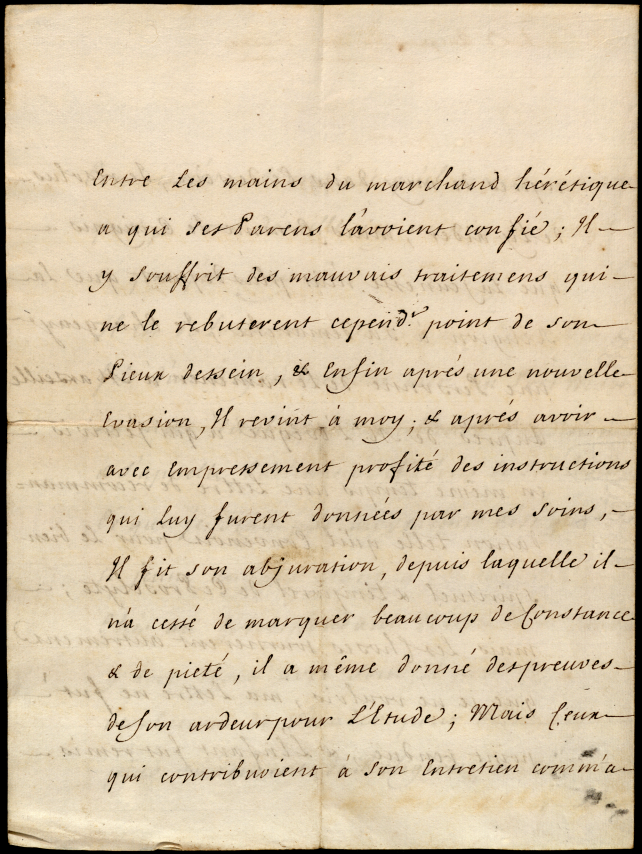 Entre Les mains du marchand hérétique
a qui ses Parens l'avoient confié; Il
y souffrit des mauvais traitemens qui
ne le rebuterent cepend.t point de son
Pieux dessein, & Enfin aprés une nouvelle
Evasion, Il revint à moy; & aprés avoir
avec Empressement profité des instructions
qui Luy furent données par mes soins,
Il fit son abjuration, depuis laquelle il
n'a cessé de marquer beaucoup de Constance
& de pieté, il a même donné des preuves
de son ardeur pour L'Etude; Mais Ceux
qui contribuoient à son Entretien comm'a